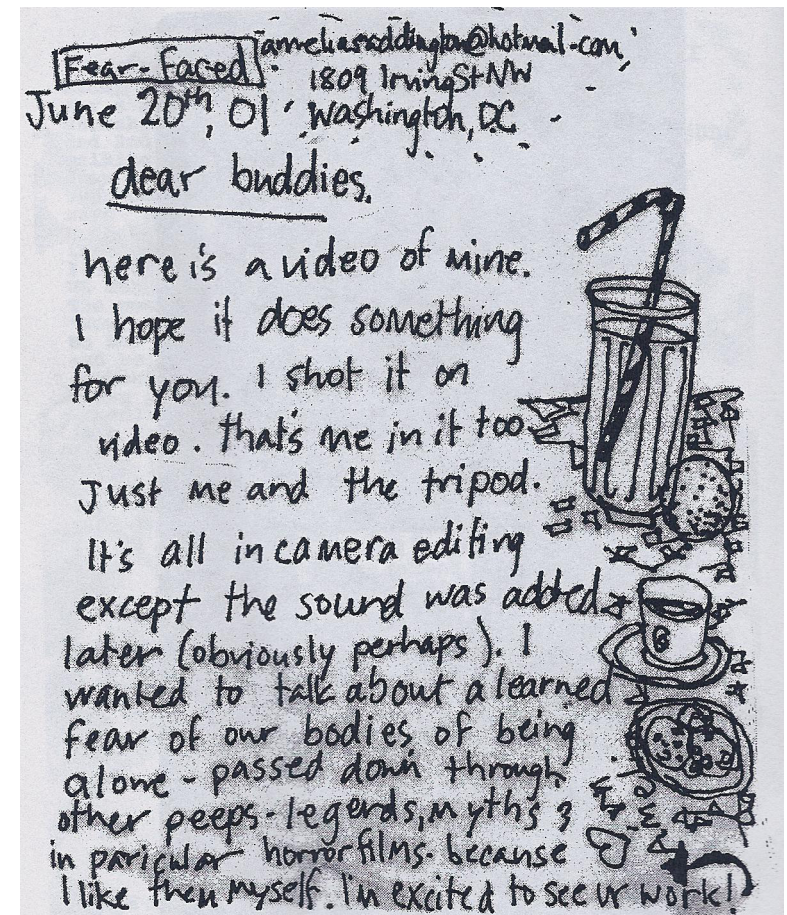 Fear-Faced
ameliasaddington@hotmail.com
1809 Irving St NW
June 20th, 01 Washington, DC
dear buddies,
here is a video of mine.
I hope it does something
for you. I shot it on
video. that's me in it too
Just me and the tripod.
It's all in camera editing
except the sound was added
later (obviously perhaps). I
wanted to talk about a learned
fear of our bodies, of being
alone - passed down through
other peeps - legends, myths &
in paricular horror films. because
I like them myself. I'm excited to see ur work!